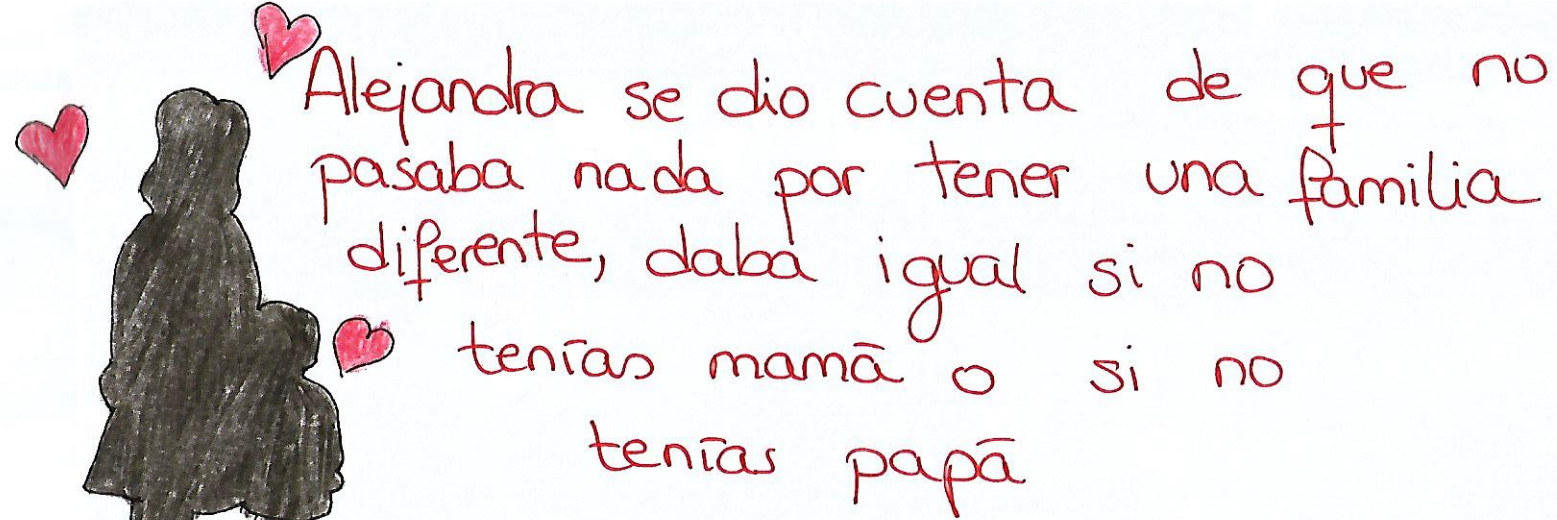 Alejandra se dio cuenta de que no
pasaba nada por tener una familia
diferente, daba igual si no
tenías mamá o si no
tenías papá